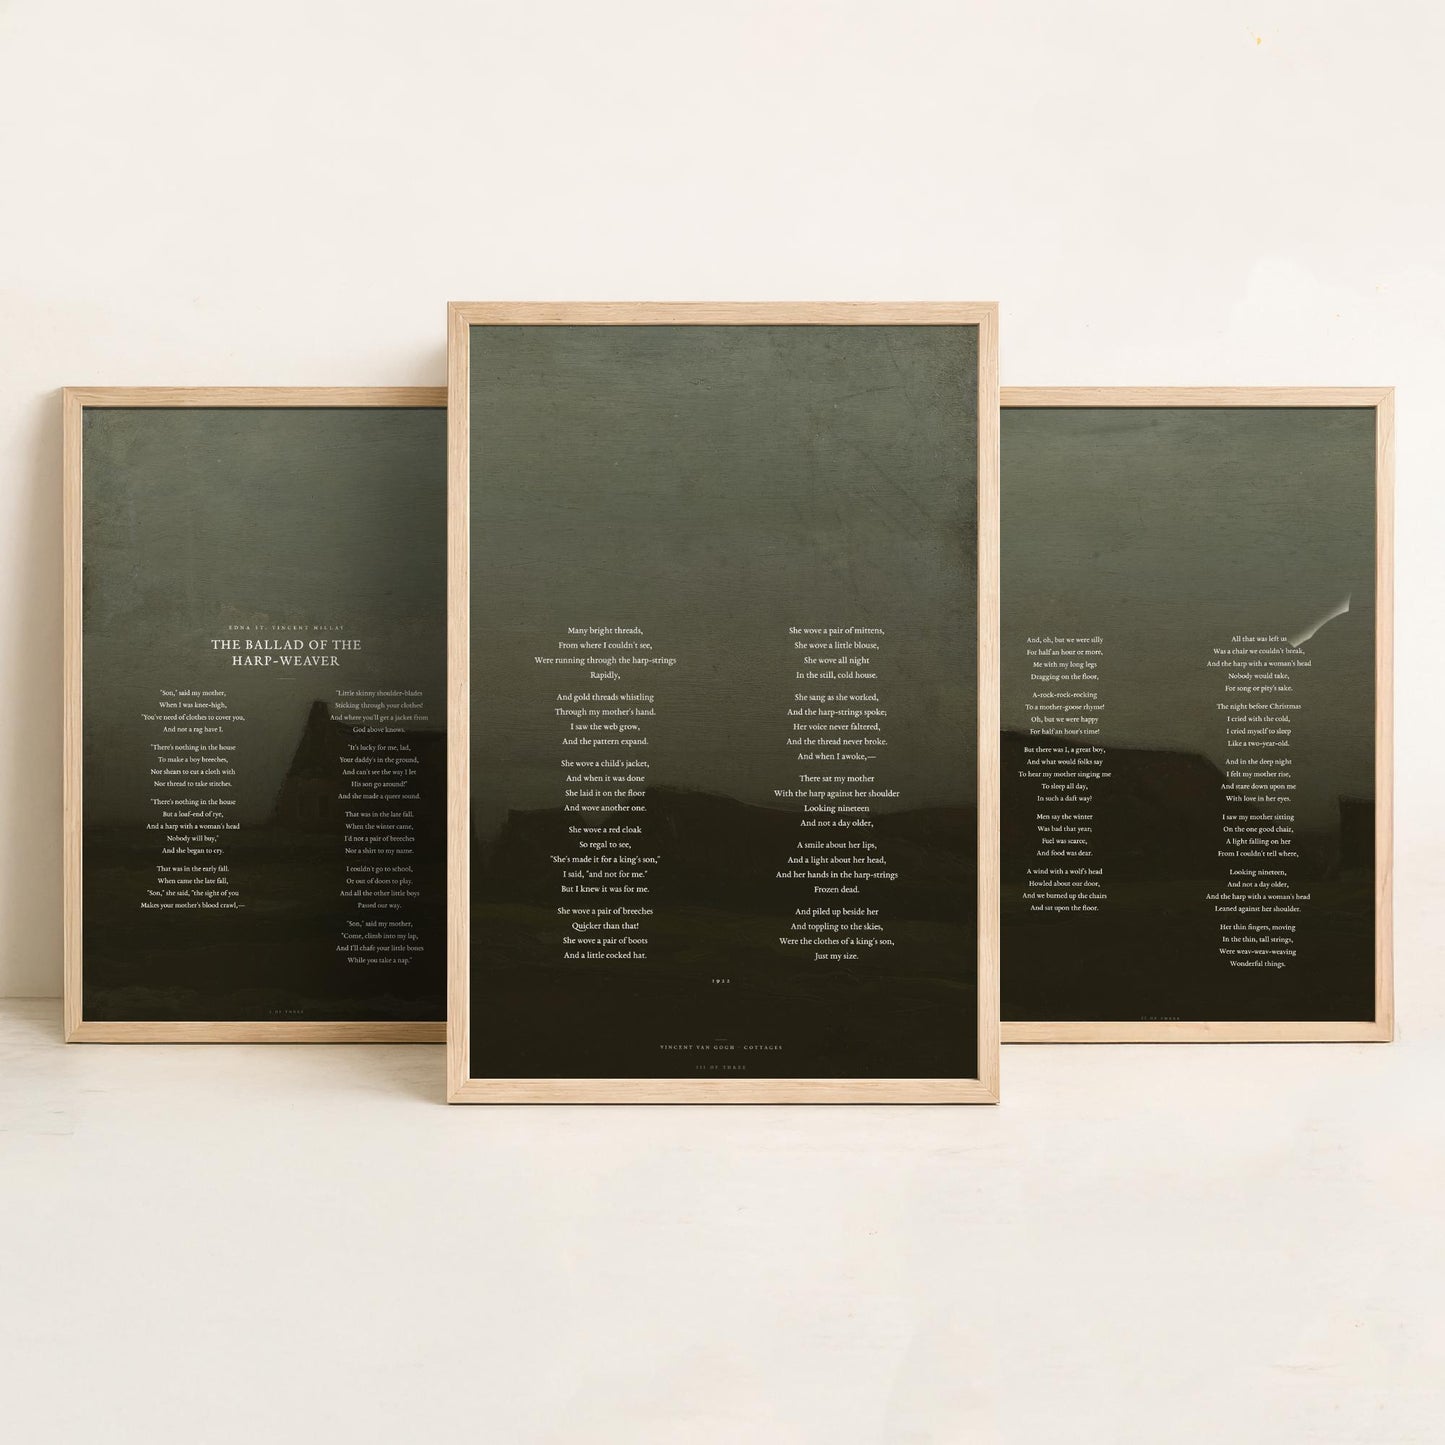 EDNA ST. VINCENT MILLAY
THE BALLAD OF THE
HARP-WEAVER
"Son," said my mother,
When I was knee-high,
"You've need of clothes to cover you,
And not a rag have I.
"There's nothing in the house
To make a boy breeches,
Nor shears to cut a cloth with
Nor thread to take stitches.
"There's nothing in the house
But a loaf-end of rye,
And a harp with a woman's head
Nobody will buy,"
And she began to cry.
That was in the early fall.
When came the late fall,
"Son," she said, "the sight of you
Makes your mother's blood crawl,—
"Little skinny shoulder-blades
Sticking through your clothes!
And where you'll get a jacket from
God above knows.
"It's lucky for me, lad,
Your daddy's in the ground,
And can't see the way I let
His son go around!"
And she made a queer sound.
That was in the late fall.
When the winter came,
I'd not a pair of breeches
Nor a shirt to my name.
I couldn't go to school,
Or out of doors to play.
And all the other little boys
Passed our way.
"Son," said my mother,
"Come, climb into my lap,
And I'll chafe your little bones
While you take a nap."
I OF THREE
Many bright threads,
From where I couldn't see,
Were running through the harp-strings
Rapidly,
And gold threads whistling
Through my mother's hand.
I saw the web grow,
And the pattern expand.
She wove a child's jacket,
And when it was done
She laid it on the floor
And wove another one.
She wove a red cloak
So regal to see,
"She's made it for a king's son,"
I said, "and not for me."
But I knew it was for me.
She wove a pair of breeches
Quicker than that!
She wove a pair of boots
And a little cocked hat.
She wove a pair of mittens,
She wove a little blouse,
She wove all night
In the still, cold house.
She sang as she worked,
And the harp-strings spoke;
Her voice never faltered,
And the thread never broke.
And when I awoke,—
There sat my mother
With the harp against her shoulder
Looking nineteen
And not a day older,
A smile about her lips,
And a light about her head,
And her hands in the harp-strings
Frozen dead.
And piled up beside her
And toppling to the skies,
Were the clothes of a king's son,
Just my size.
1922
VINCENT VAN GOGH · COTTAGES
III OF THREE
And, oh, but we were silly
For half an hour or more,
Me with my long legs
Dragging on the floor,
A-rock-rock-rocking
To a mother-goose rhyme!
Oh, but we were happy
For half an hour's time!
But there was I, a great boy,
And what would folks say
To hear my mother singing me
To sleep all day,
In such a daft way?
Men say the winter
Was bad that year;
Fuel was scarce,
And food was dear.
A wind with a wolf's head
Howled about our door,
And we burned up the chairs
And sat upon the floor.
All that was left us
Was a chair we couldn't break,
And the harp with a woman's head
Nobody would take,
For song or pity's sake.
The night before Christmas
I cried with the cold,
I cried myself to sleep
Like a two-year-old.
And in the deep night
I felt my mother rise,
And stare down upon me
With love in her eyes.
I saw my mother sitting
On the one good chair,
A light falling on her
From I couldn't tell where,
Looking nineteen,
And not a day older,
And the harp with a woman's head
Leaned against her shoulder.
Her thin fingers, moving
In the thin, tall strings,
Were weav-weav-weaving
Wonderful things.
II OF THREE